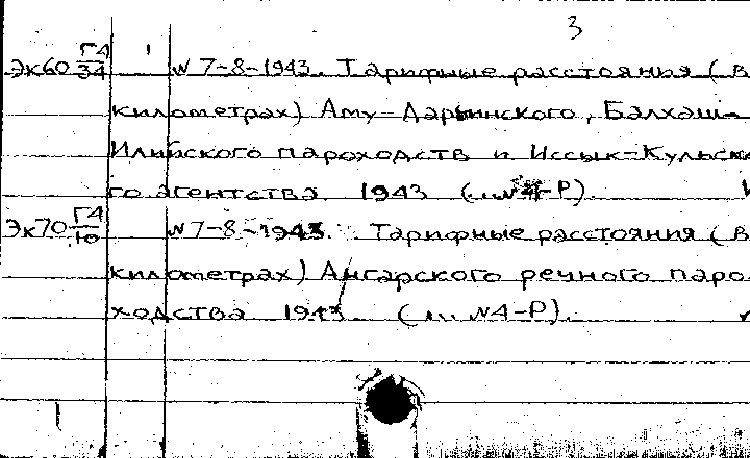 3
Эк60 Г4/34 N 7-8-1943. Тарифные расстояния (в
километрах) Аму-Дарьинского, Балхаш-
Илийского пароходств и Иссык-Кульско
го агентства 1943 (...N4-Р).
Эк70 Г4/10 N 7-8-1943. Тарифные расстояния (в
километрах) Ангарского речного паро
ходства 1943 (... N4-Р).